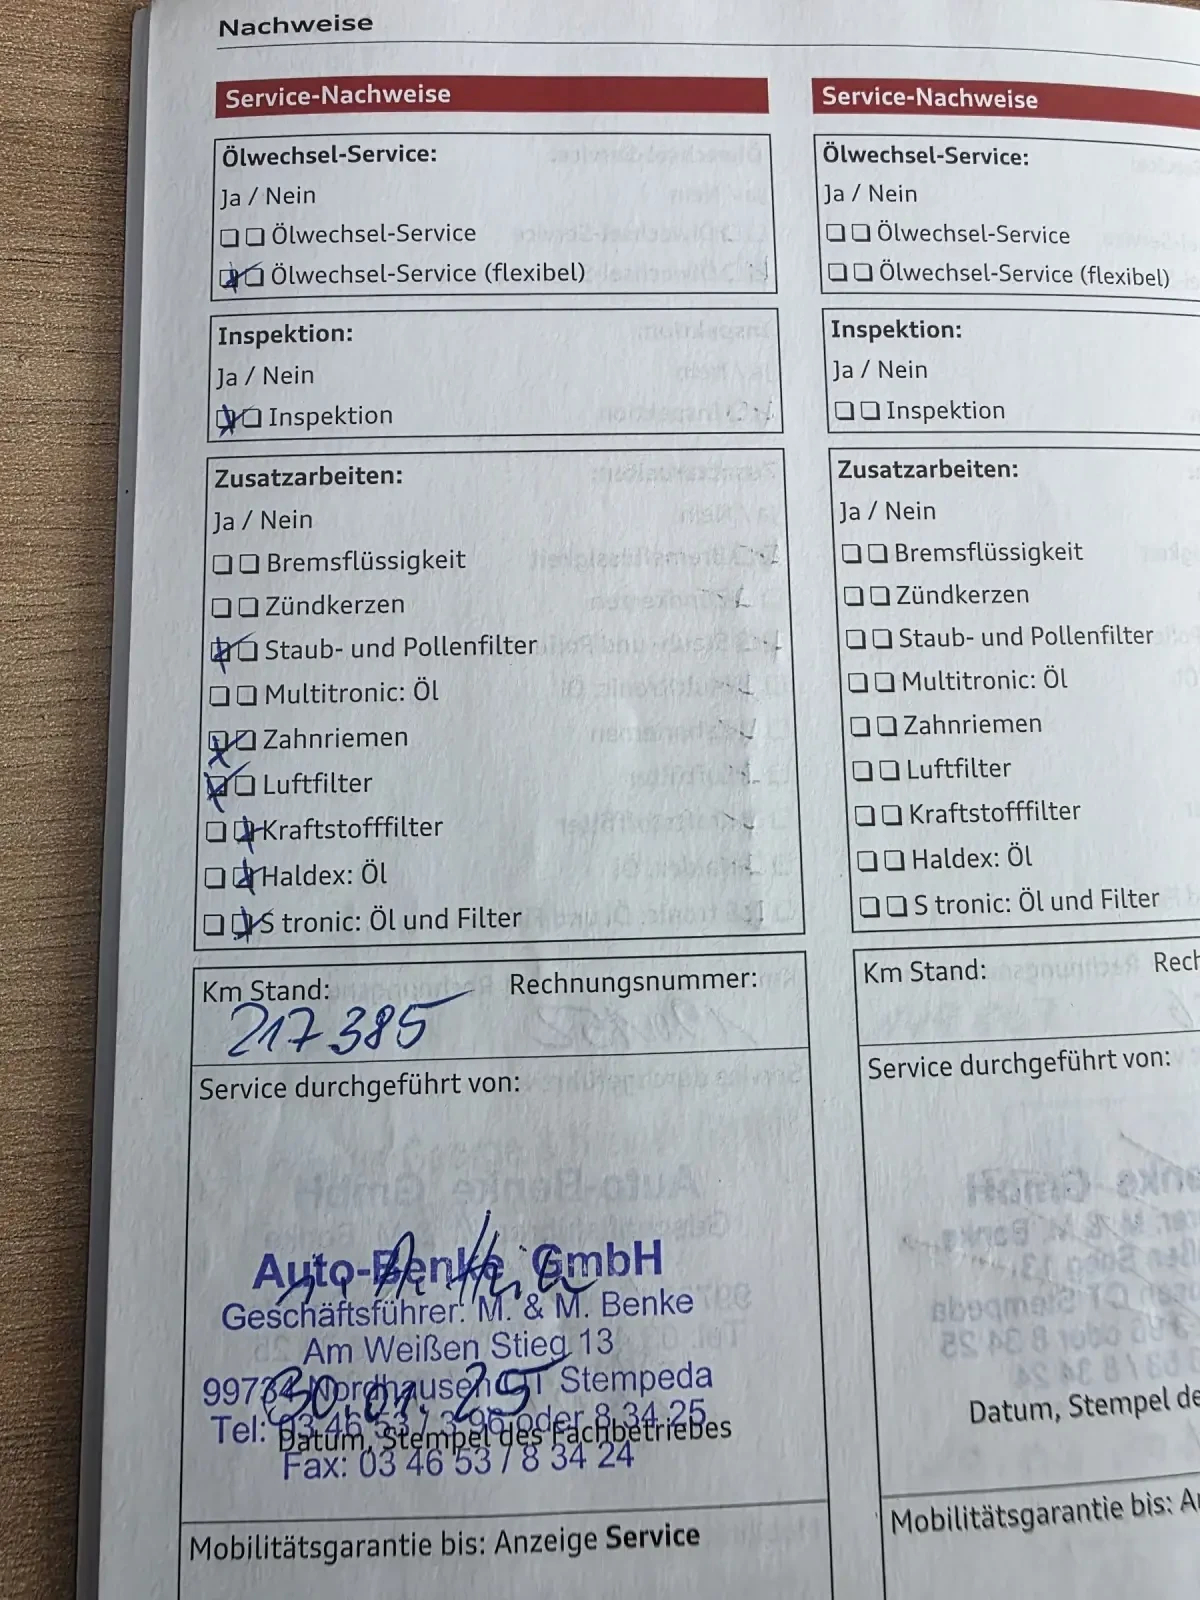 Nachweise
Service-Nachweise
Ölwechsel-Service:
Ja / Nein
Ölwechsel-Service
Ölwechsel-Service (flexibel)
Inspektion:
Ja / Nein
Inspektion
Zusatzarbeiten:
Ja / Nein
Bremsflüssigkeit
Zündkerzen
Staub- und Pollenfilter
Multitronic: Öl
Zahnriemen
Luftfilter
Kraftstofffilter
Haldex: Öl
S tronic: Öl und Filter
Km Stand: Rechnungsnummer:
217385
Service durchgeführt von:
Auto-Benke GmbH
Geschäftsführer: M. & M. Benke
Am Weißen Stieg 13
99734 Nordhausen OT Stempeda
30.01.25
Tel: 03 46 53 / 3 96 oder 8 34 25
Datum, Stempel des Fachbetriebes
Fax: 03 46 53 / 8 34 24
Mobilitätsgarantie bis: Anzeige Service
Service-Nachweise
Ölwechsel-Service:
Ja / Nein
Ölwechsel-Service
Ölwechsel-Service (flexibel)
Inspektion:
Ja / Nein
Inspektion
Zusatzarbeiten:
Ja / Nein
Bremsflüssigkeit
Zündkerzen
Staub- und Pollenfilter
Multitronic: Öl
Zahnriemen
Luftfilter
Kraftstofffilter
Haldex: Öl
S tronic: Öl und Filter
Km Stand: Rech
Service durchgeführt von:
Datum, Stempel de
Mobilitätsgarantie bis: A